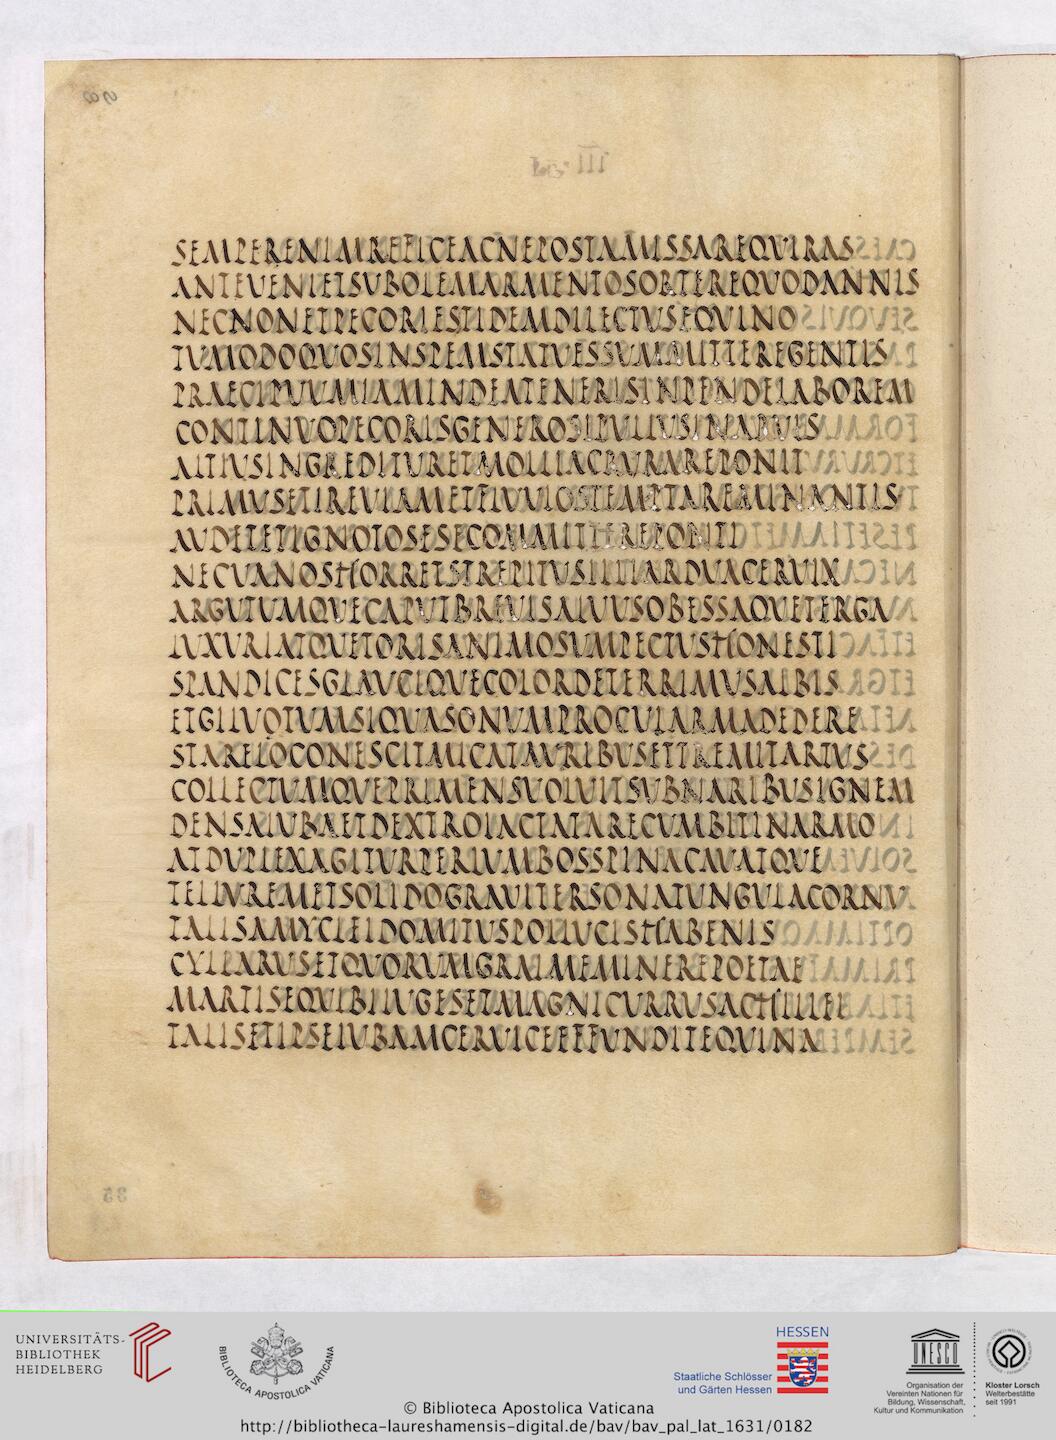 SEMPERENIMREFICEACNEPOSTAMISSAREQVIRAS
ANTEVENIETSVBOLEMARMENTOSORTIREQVODANNIS
NECNONETPECORIESTIDEMDILECTVSEQVINO
TVMODOQVOSINSPEMSTATVESSVMMITTEREGENTIS
PRAECIPVVMIAMINDEATENERISINPENDELABOREM
CONTINVOPECORISGENEROSIPVLLVSINARVIS
ALTIVSINGREDITVRETMOLLIACRVRAREPONIT
PRIMVSETIREVIAMETFLVVIOSTEMPTAREMINANTIS
AVDETETIGNOTOSESECOMMITTEREPONTI
NECVANOSHORRETSTREPITVSILLIARDVACERVIX
ARGVTVMQVECAPVTBREVISALVVSOBESSAQVETERGA
LVXVRIATQVETORISANIMOSVMPECTVSHONESTI
SPANDICESGLAVCIQVECOLORDETERRIMVSALBIS
ETGILVOTVMSIQVASONVMPROCVLARMADEDERE
STARELOCONESCITMICATAVRIBVSETTREMITARTVS
COLLECTVMQVEPREMENSVOLVITSVBNARIBVSIGNEM
DENSAIVBAETDEXTROIACTATARECVMBITINARMO
ATDVPLEXAGITVRPERLVMBOSSPINACAVATQVE
TELLVREMETSOLIDOGRAVITERSONATVNGVLACORNV
TALISAMYCLEIDOMITVSPOLLVCISHABENIS
CYLLARVSETQVORVMGRAIMEMINEREPOETAE
MARTISEQVIBIIVGESETMAGNICVRRVSACHILLEI
TALISETIPSEIVBAMCERVICEEFFVNDITEQVINA
UNIVERSITÄTS-
BIBLIOTHEK
HEIDELBERG
BIBLIOTECA APOSTOLICA VATICANA
HESSEN
Staatliche Schlösser
und Gärten Hessen
UNESCO
Organisation der
Vereinten Nationen für
Bildung, Wissenschaft,
Kultur und Kommunikation
Kloster Lorsch
Welterbestätte
seit 1991
© Biblioteca Apostolica Vaticana
http://bibliotheca-laureshamensis-digital.de/bav/bav_pal_lat_1631/0182